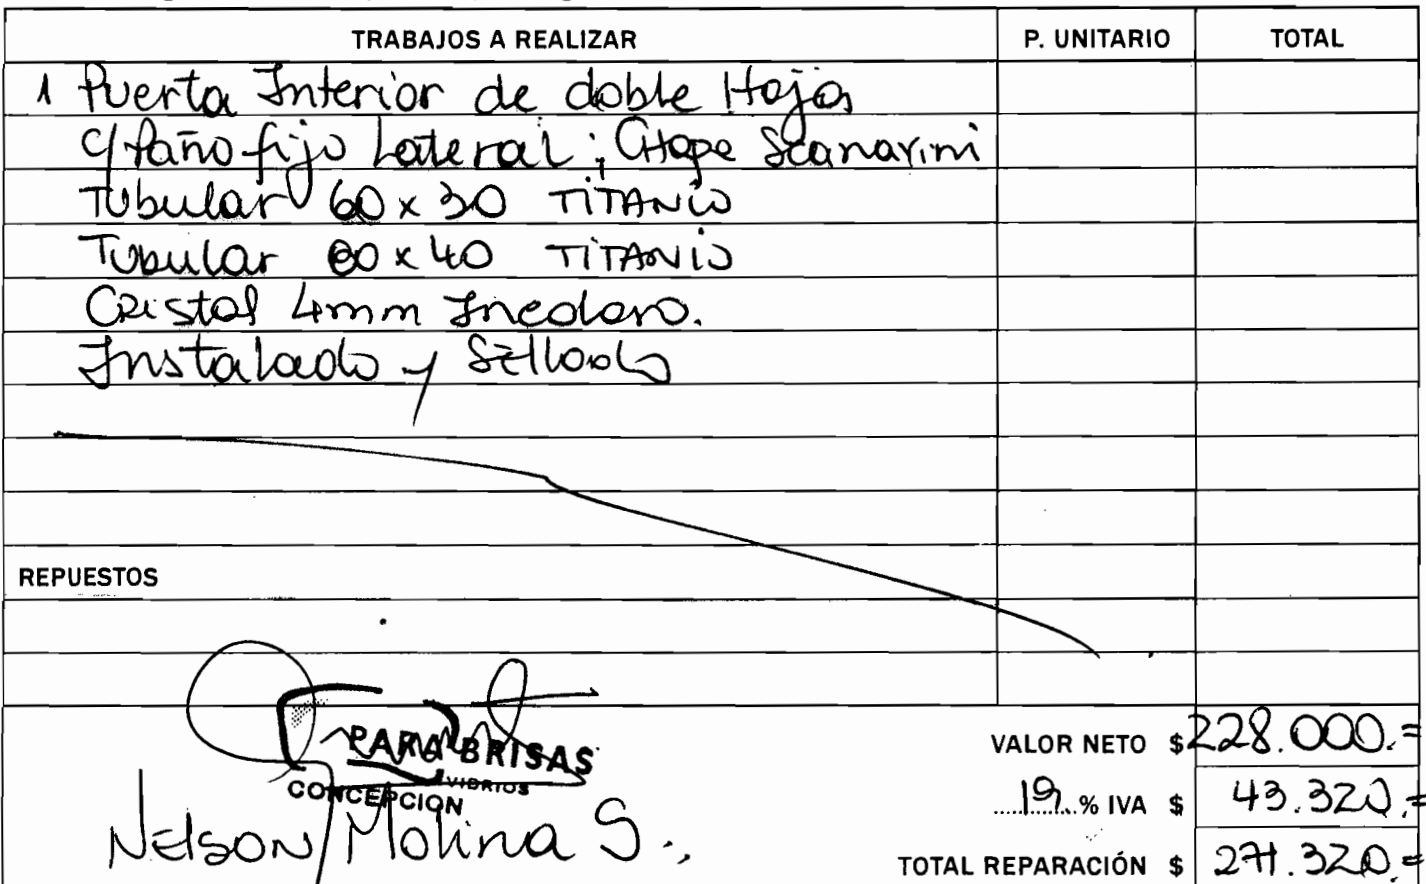 TRABAJOS A REALIZAR P. UNITARIO TOTAL
1 Puerta Interior de doble Hoja
c/paño fijo Lateral ; Scanavini
Tubular 60 x 30 TITANIO
Tubular 80 x 40 TITANIO
Cristal 4mm Incoloro.
Instalado y Sellado
REPUESTOS
PARABRISAS
VIDRIOS
CONCEPCION
Nelson Molina S.
VALOR NETO $ 228.000.=
19 % IVA $ 43.320.=
TOTAL REPARACIÓN $ 271.320.=